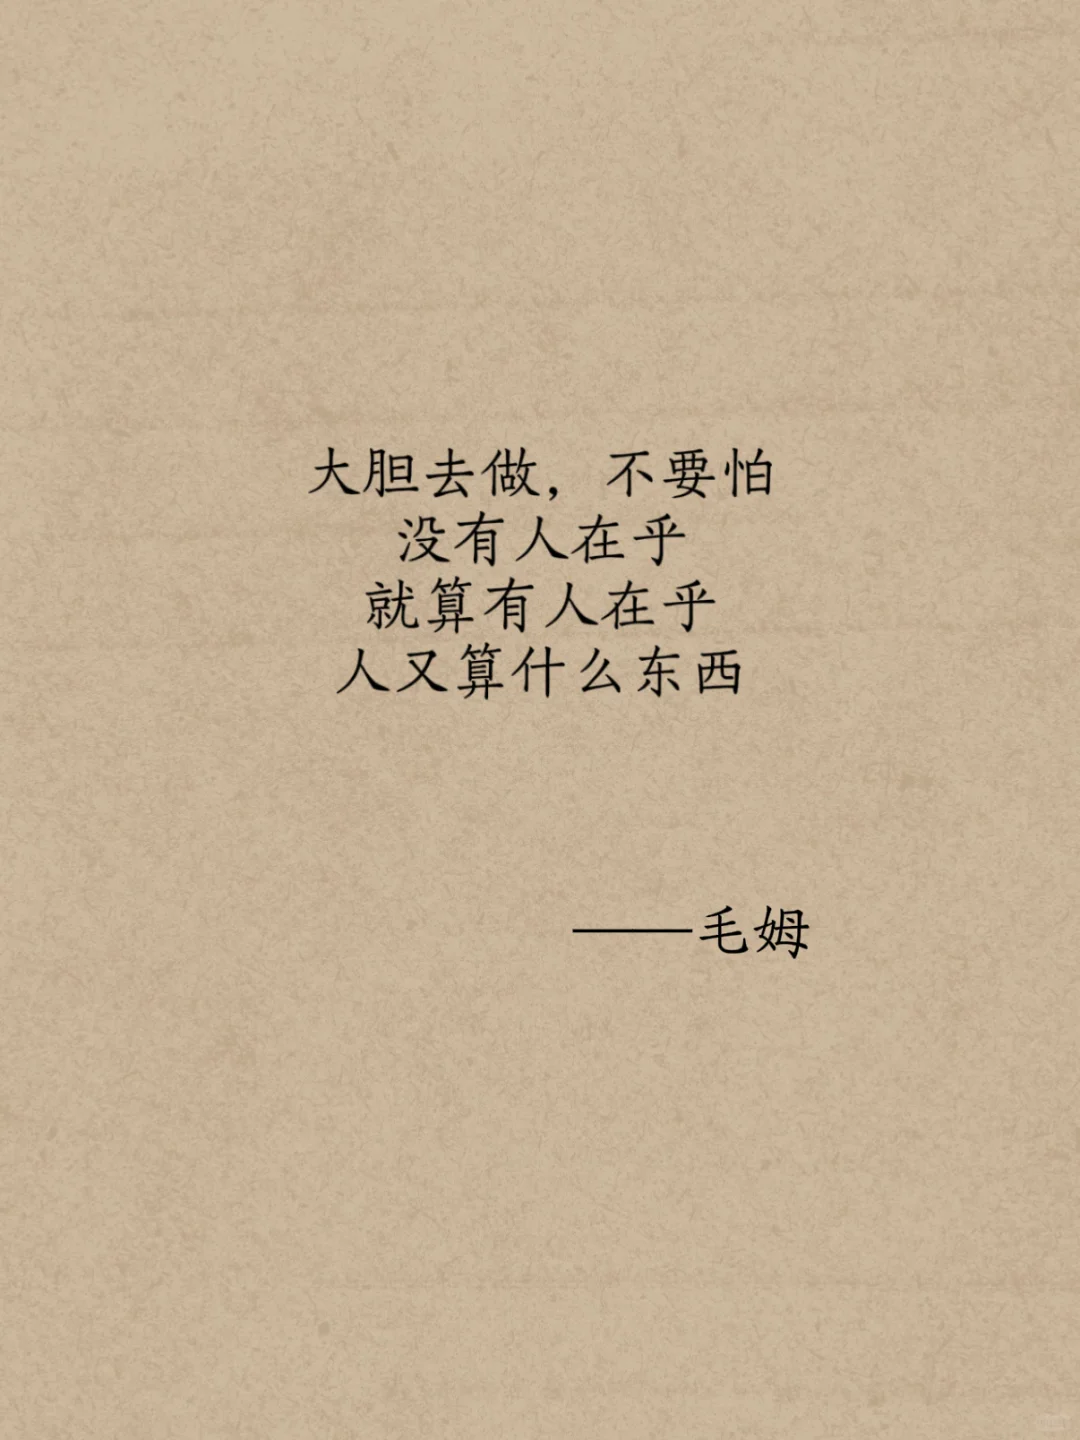 大胆去做，不要怕
没有人在乎
就算有人在乎
人又算什么东西
——毛姆